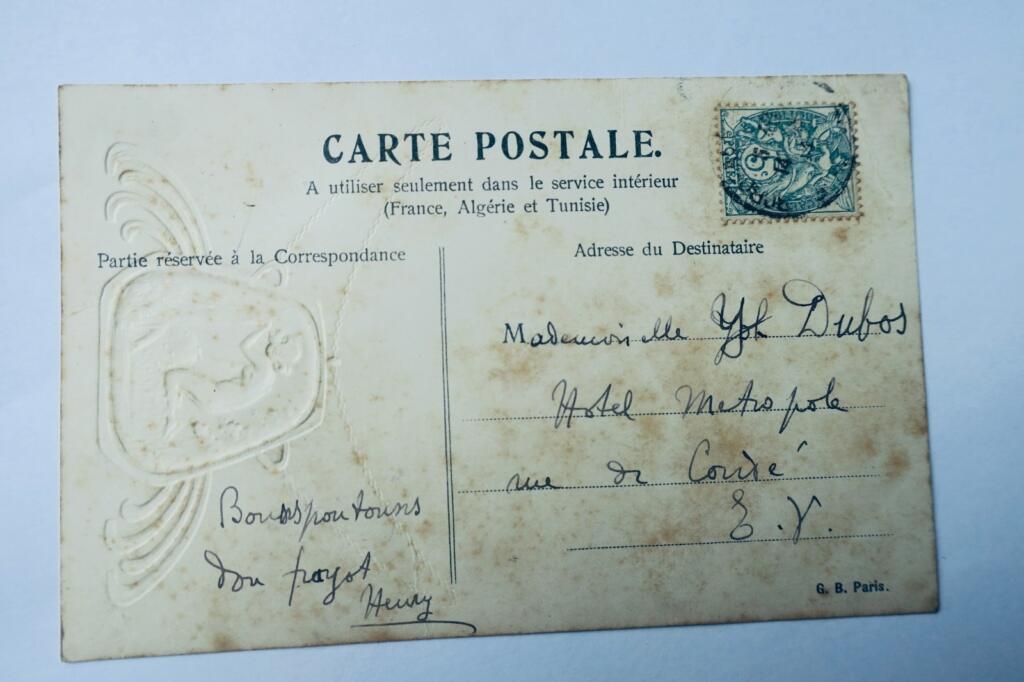 CARTE POSTALE.
A utiliser seulement dans le service intérieur
(France, Algérie et Tunisie)
Partie réservée à la Correspondance
Adresse du Destinataire
Mademoiselle Dubos
Hotel Metropole
rue de Condé
E.V.
Henry
G. B. Paris.